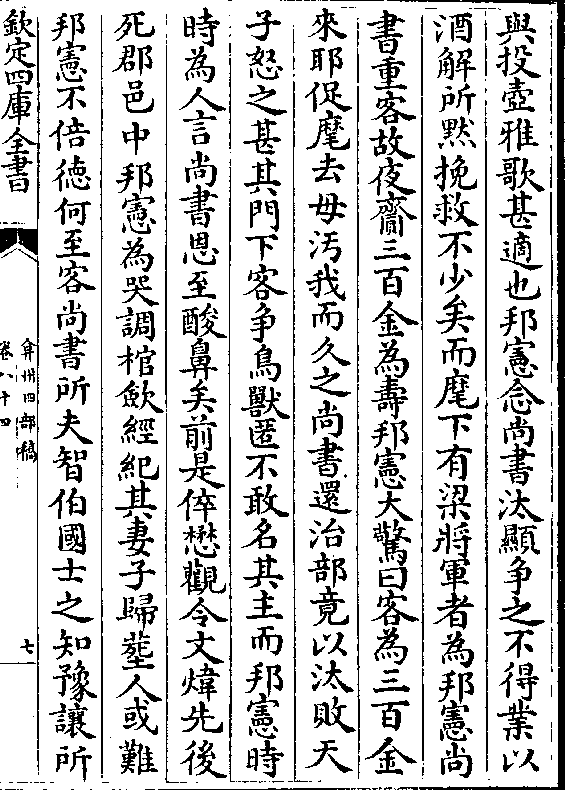 與投壺雅歌甚適也邦憲念尚書汰顯争之不得業以
酒解所黙挽救不少矣而麾下有梁將軍者為邦憲尚
書重客故夜齎三百金為壽邦憲大驚曰客為三百金
來耶促麾去毋汚我而久之尚書還治部竟以汰敗天
子怒之甚其門下客争鳥獸匿不敢名其主而邦憲時
時為人言尚書恩至酸鼻矣前是倅懋觀令文煒先後
死郡邑中邦憲為哭調棺歛經紀其妻子歸塟人或難
邦憲不倍徳何至客尚書所夫智伯國士之知豫讓所
欽定四庫全書
弇州四部稿
卷八十四
七